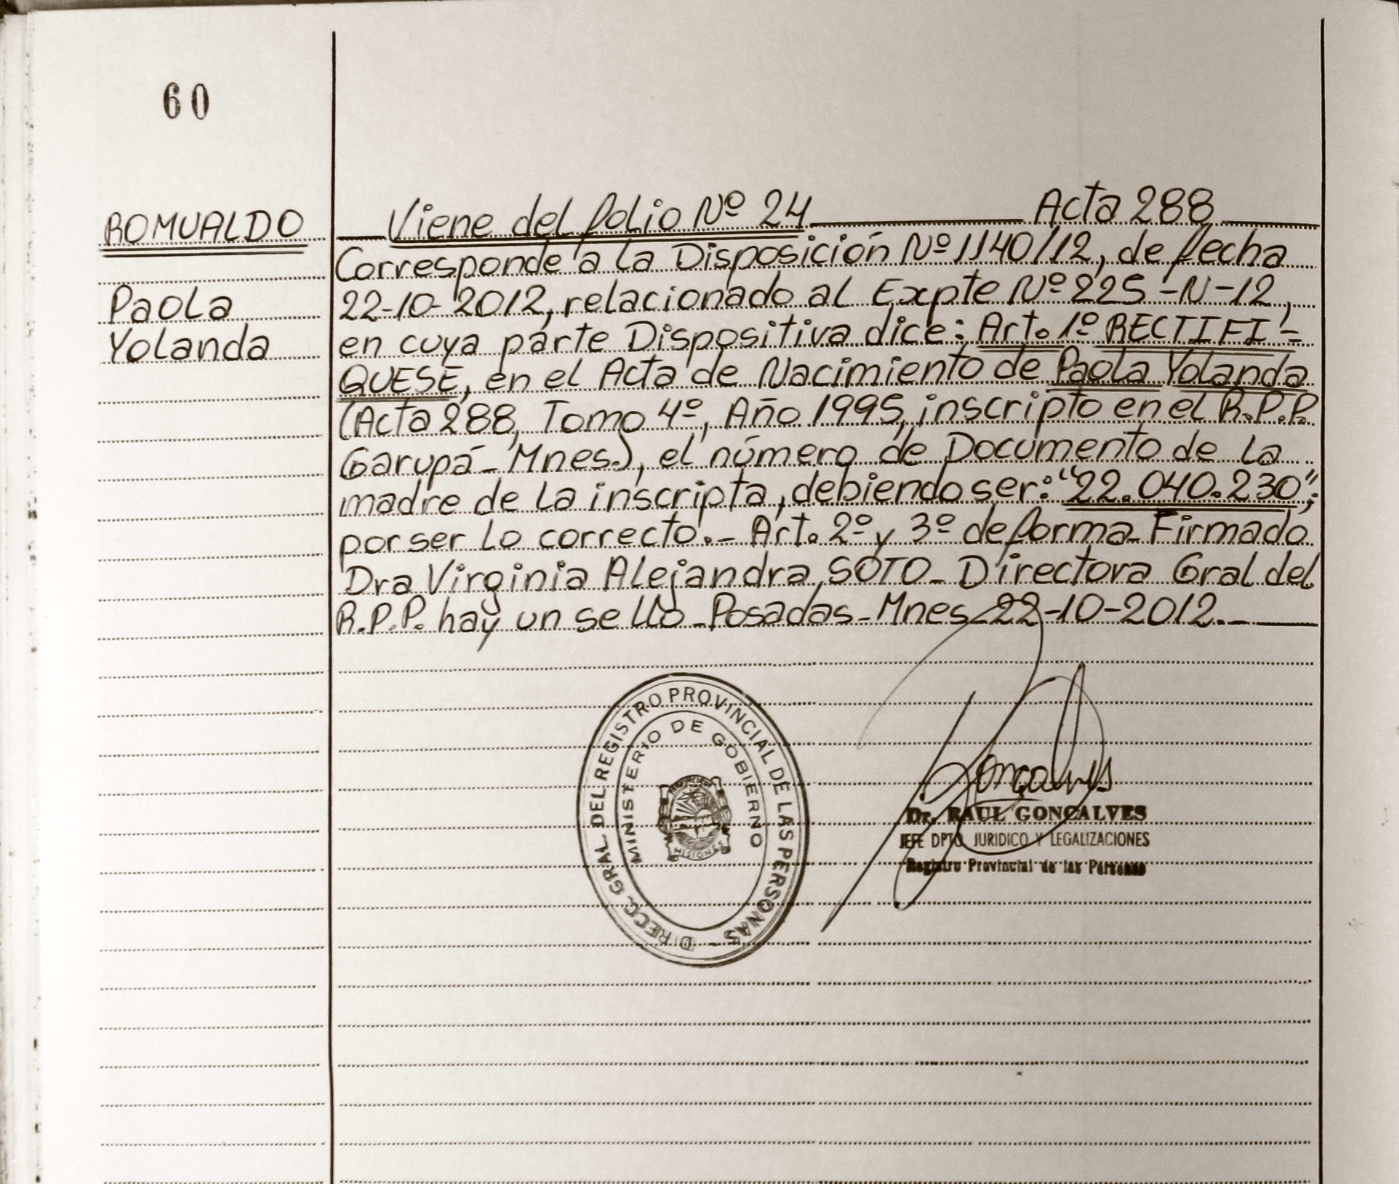 60
ROMUALDO
Paola
Yolanda
Viene del folio Nº 24 Acta 288
Corresponde a la Disposición Nº 1140/12, de fecha
22-10-2012, relacionado al Expte Nº 225-N-12,
en cuya parte Dispositiva dice: Art. 1º RECTIFI-
QUESE, en el Acta de Nacimiento de Paola Yolanda
(Acta 288, Tomo 4º, Año 1995, inscripto en el R.P.P.
Garupá-Mnes.), el número de Documento de la
madre de la inscripta, debiendo ser: "22.040.230";
por ser lo correcto.- Art. 2º y 3º de forma- Firmado
Dra Virginia Alejandra SOTO- Directora Gral del
R.P.P. hay un sello-Posadas-Mnes-22-10-2012.-
DIRECC. GRAL. DEL REGISTRO PROVINCIAL DE LAS PERSONAS -
MINISTERIO DE GOBIERNO
MISIONES
Gonçalves
Dr. RAUL GONÇALVES
JEFE DPTO JURIDICO Y LEGALIZACIONES
Registro Provincial de las Personas